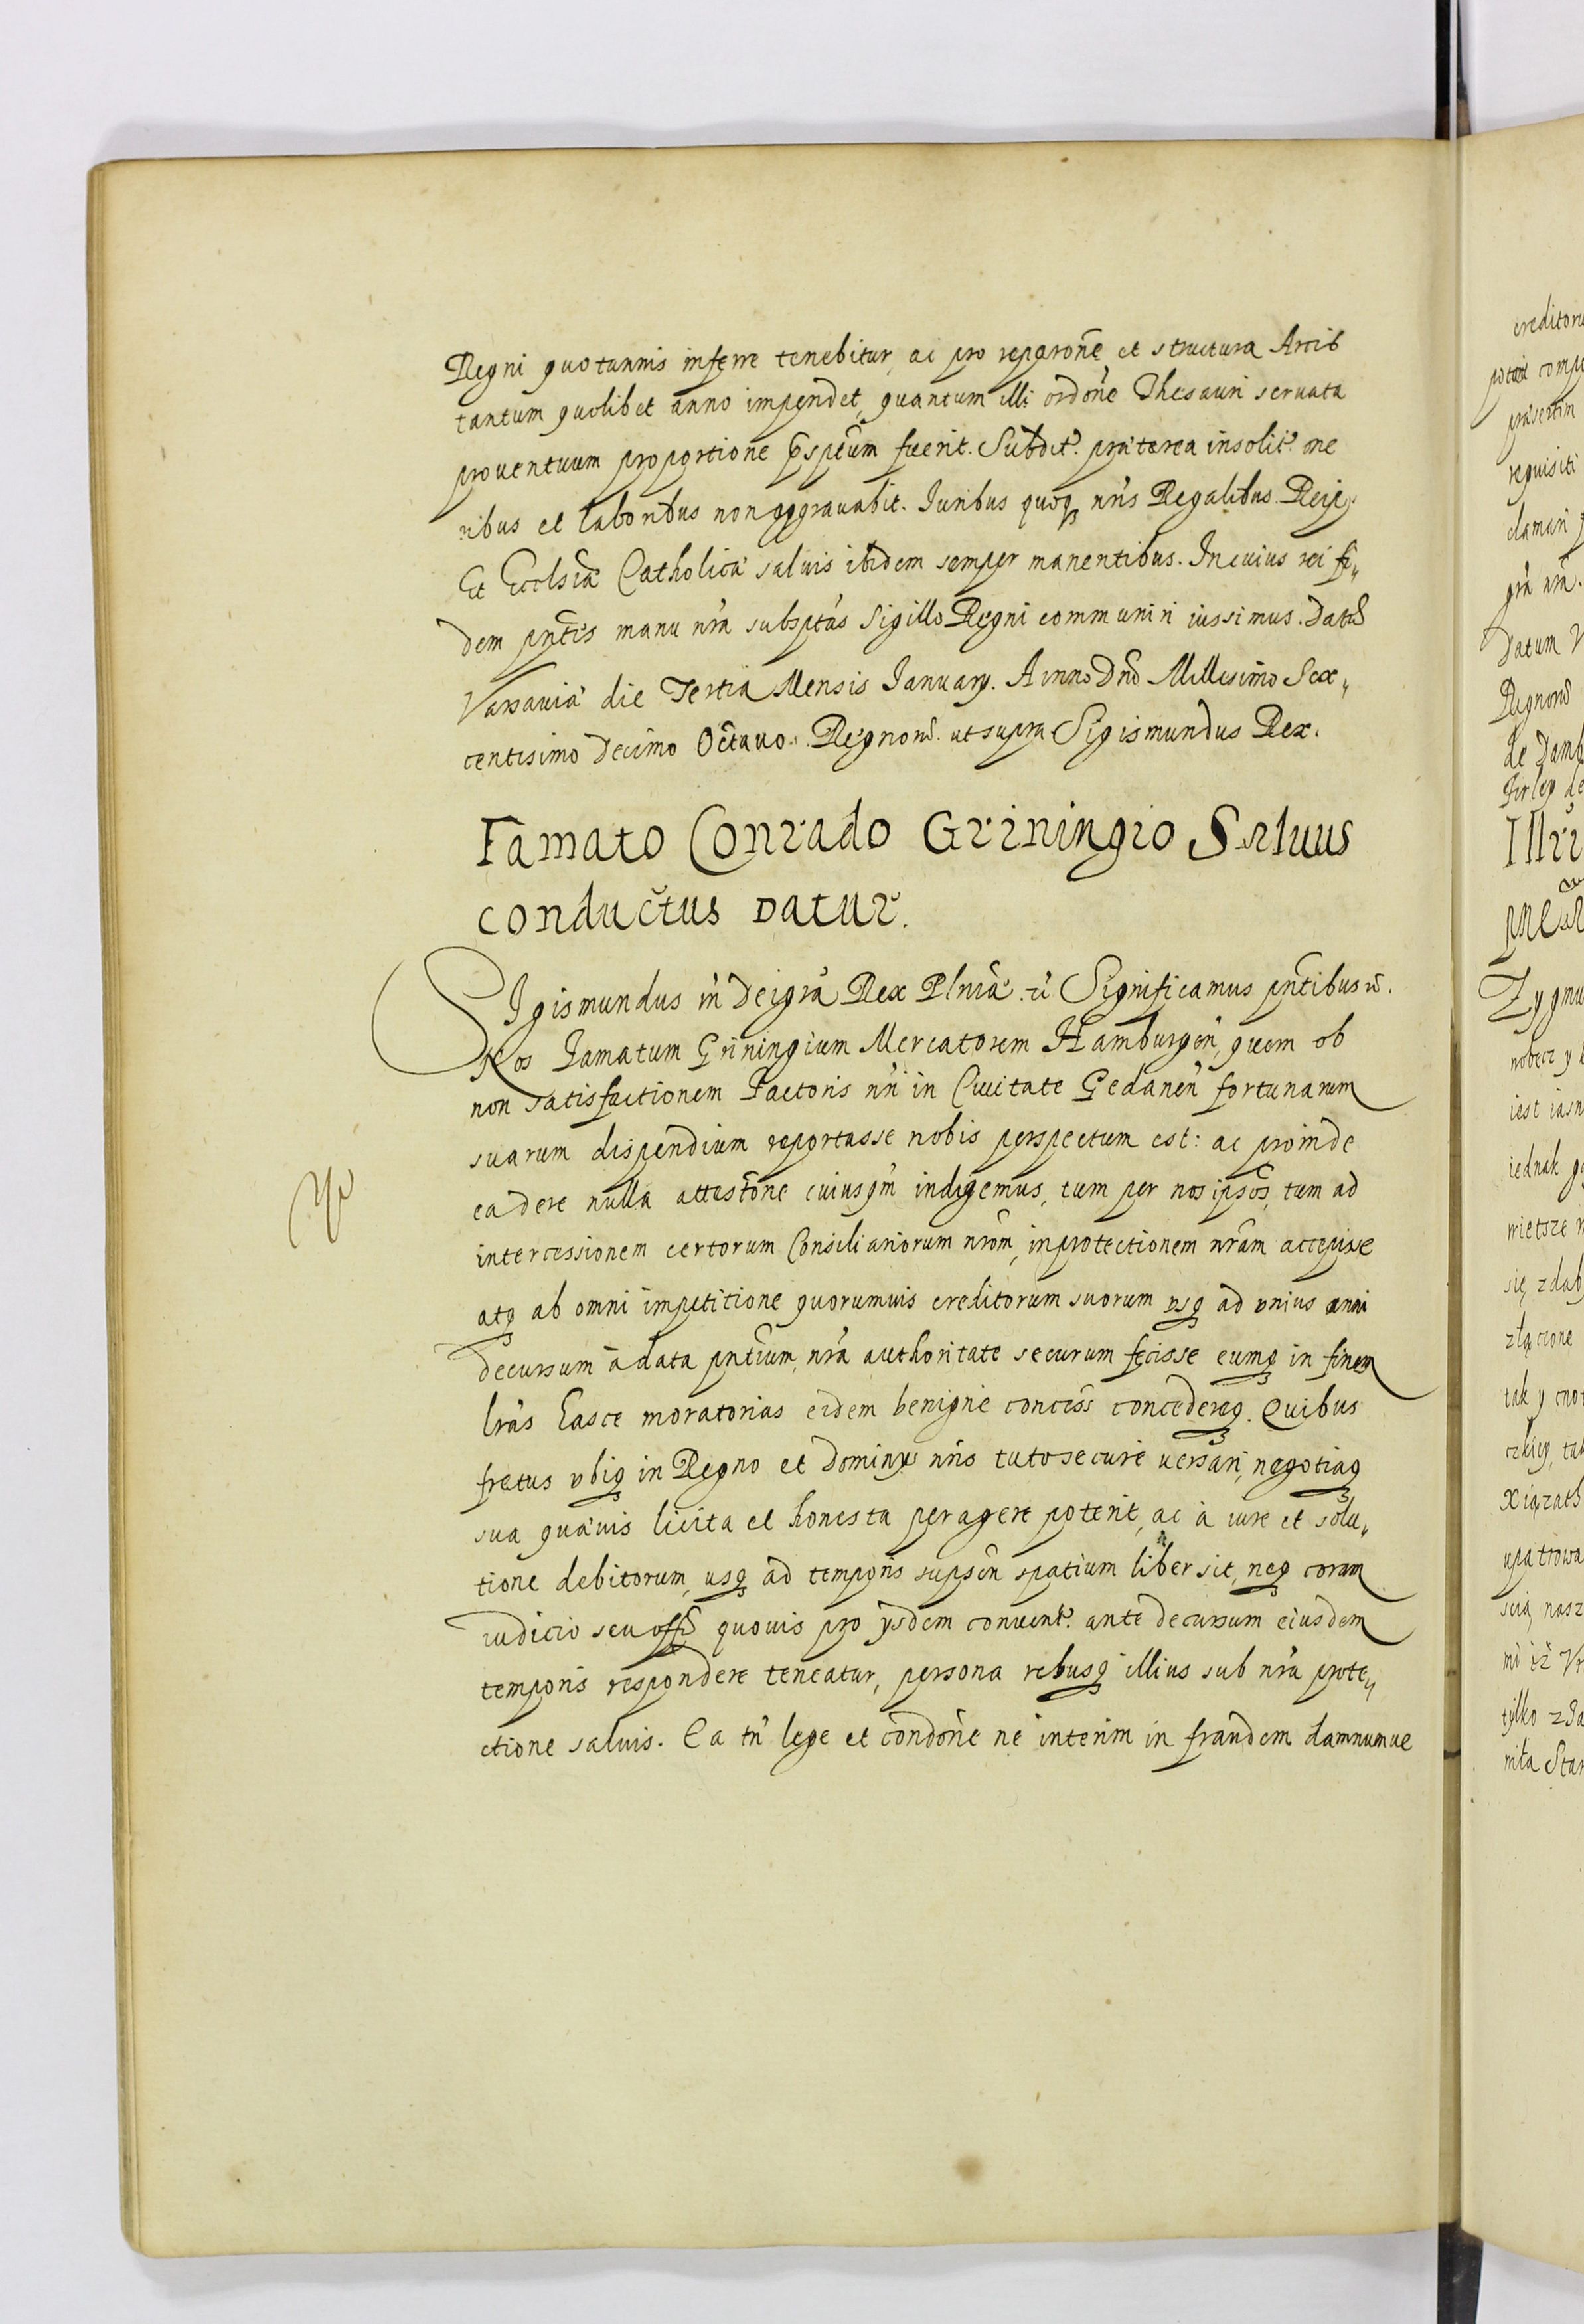 Regni quotannis inferre tenebitur, ac pro reparõne et structura Arcis
tantum quolibet anno impendet, quantum illi ordõne Thesauri seruata
prouentuum proportione pspẽum fuerit. Subdit. præterea insolit. one
ribus et laboribus non aggrauabit. Iuribus quoq nris Regalibus Reip.
Et Ecclsiæ Catholicæ saluis ibidem semper manentibus. In cuius rei fi„
dem pntes manu nra subsptas Sigillo Regni communiri iussimus. Datũ
Varsauiæ die Tertia Mensis Ianuary. Anno Dnĩ Millesimo Sex„
centesimo Decimo Octauo. Regnorũ. ut supra Sigismundus Rex.
Famato Conrado Griningio Saluus
conductus datur.
SIgismundus iii Dei gra Rex Plniæ. Significamus pntibus.
Nos Famatum Griningium Mercatorem Hamburgen, quem ob
non satisfactionem Factoris nri in Ciuitate Gedanen fortunarum
suarum dispendium reportasse nobis perspectum est: ac proinde
ea de re nulla attestõne cuiusqm indigemus, tum per nos ipsos, tum ad
intercessionem certorum Consiliariorum nrom, in protectionem nram accepisse
atq ab omni impetitione quorumuis creditorum suorum vsq ad vnius anni
decursum à data pntium, nra authoritate securum fecisse eumq in finem
lras hasce moratorias eidem benigne concess concedereq. Quibus
fretus vbiq in Regno et Dominys nris tuto secure uersari, negotiaq
sua quæuis licita et honesta peragere poterit, ac à iure et solu„
tione debitorum, usq ad temporis supsen spatium liber sit, neq coram
iudicio seu offo quouis pro ysdem conuent. ante decursum eiusdem
temporis respondere teneatur, persona rebusq illius sub nra prote„
ctione saluis. Ea tn lege et condõne ne interim in fraudem damnumue